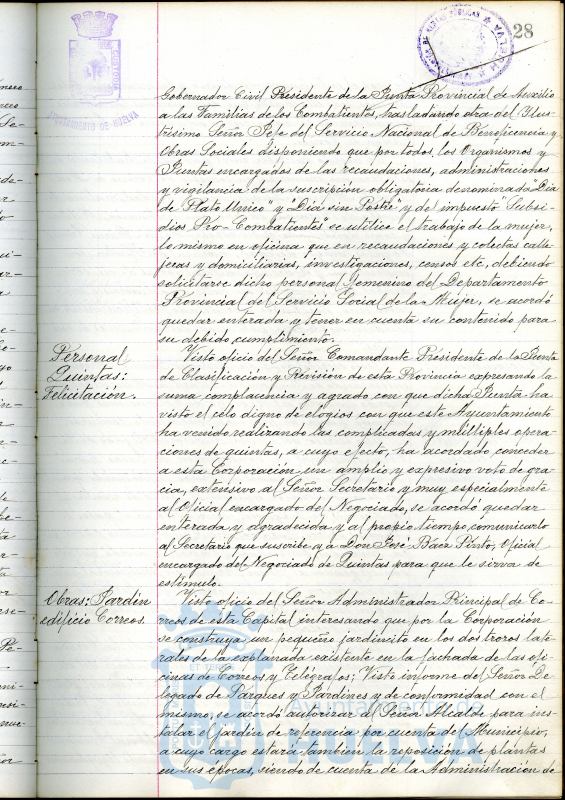 28
AYUNTAMIENTO DE HUELVA
Gobernador Civil Presidente de la Junta Provincial de Auxilio
a las Familias de los Combatientes, trasladando otra del Ilus-
trísimo Señor Jefe del Servicio Nacional de Beneficencia y
Obras Sociales disponiendo que por todos los Organismos y
Juntas encargados de las recaudaciones, administraciones
y vigilancia de la suscripción obligatoria denominada "Día
de Plato Unico" y "Dia sin Postre" y del impuesto "Subsi-
dios Pro-Combatientes" se utilice el trabajo de la mujer,
lo mismo en oficina que en recaudaciones y colectas calle-
jeras y domiciliarias, investigaciones, censos etc, debiendo
solicitarse dicho personal femenino del Departamento
Provincial del Servicio Social de la Mujer, se acordó
quedar enterada y tener en cuenta su contenido para
su debido cumplimiento.
Personal
Quintas:
Felicitacion.
Visto oficio del Señor Comandante Presidente de la Junta
de Clasificación y Revisión de esta Provincia expresando la
suma complacencia y agrado con que dicha Junta ha
visto el celo digno de elogios con que este Ayuntamiento
ha venido realizando las complicadas y múltiples opera-
ciones de quintas, a cuyo efecto, ha acordado conceder
a esta Corporación un amplio y expresivo voto de gra-
cia, extensivo al Señor Secretario y muy especialmente
al Oficial encargado del Negociado, se acordó quedar
enterada y agradecida y al propio tiempo, comunicarlo
al Secretario que suscribe y a Don José Báez Pinto, Oficial
encargado del Negociado de Quintas para que le sirva de
estímulo.
Obras: Jardin
edificio Correos.
Visto oficio del Señor Administrador Principal de Co-
rreos de esta Capital interesando que por la Corporación
se construya un pequeño jardincito en los dos trozos late-
rales de la explanada existente en la fachada de las ofi-
cinas de Correos y Telégrafos; Visto informe del Señor De-
legado de Parques y Jardines y de conformidad con el
mismo, se acordó autorizar al Señor Alcalde para ins-
talar el jardín de referencia por cuenta del Municipio,
a cuyo cargo estará tambien la reposición de plantas
en sus épocas, siendo de cuenta de la Administración de
Ayuntamiento de
HUELVA